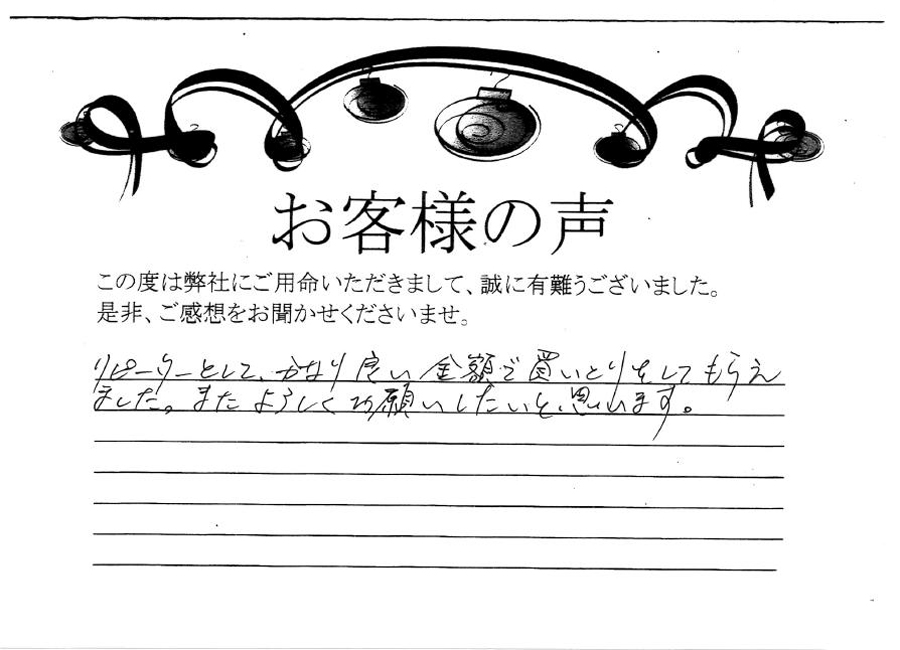 お客様の声
この度は弊社にご用命いただきまして、誠に有難うございました。
是非、ご感想をお聞かせくださいませ。
リピーターとして、かなり良い金額で買いとりをしてもらえ
ました。またよろしくお願いしたいと思います。